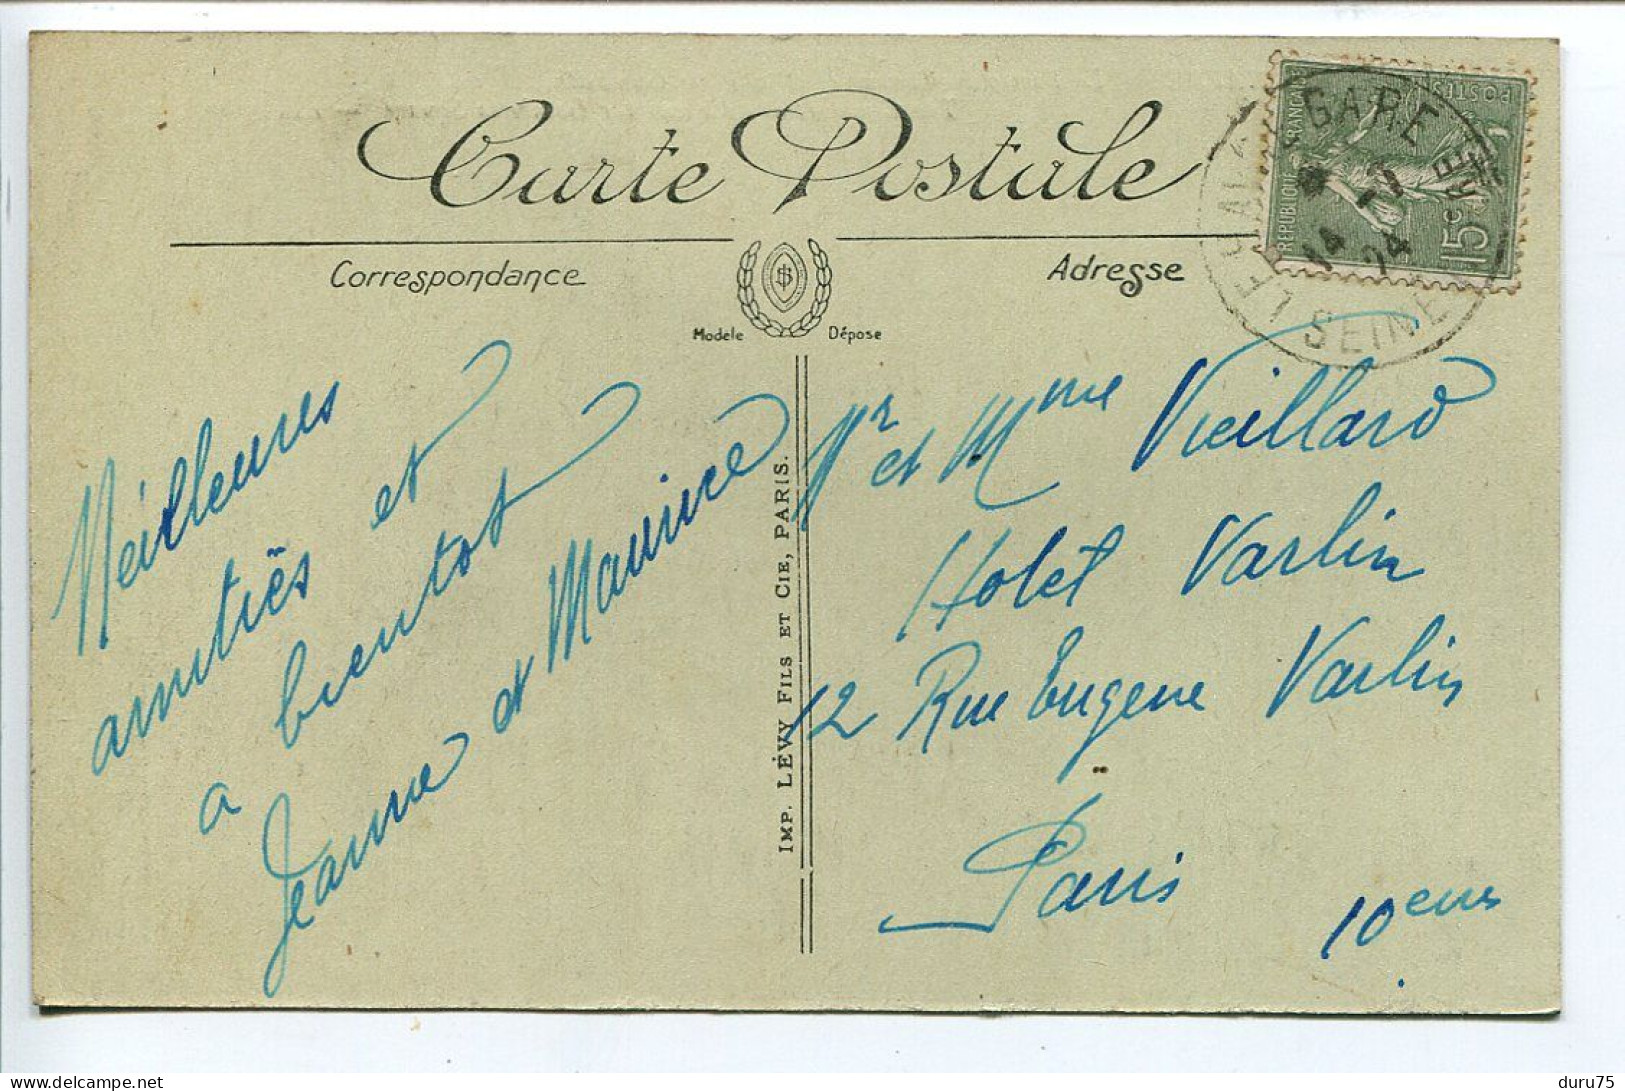 Carte Postale
Correspondance
Adresse
Modele Dépose
RÉPUBLIQUE FRANÇAISE
POSTES
15c
GARE
14
24
SEINE
Meilleures
amitiés et
a bientot
Jeanne et Maurice
IMP. LÉVY FILS ET CIE, PARIS.
Mr et Mme Vieillard
Hotel Varlin
12 Rue Eugene Varlin
Paris
10eme
delcampe.net
duru75